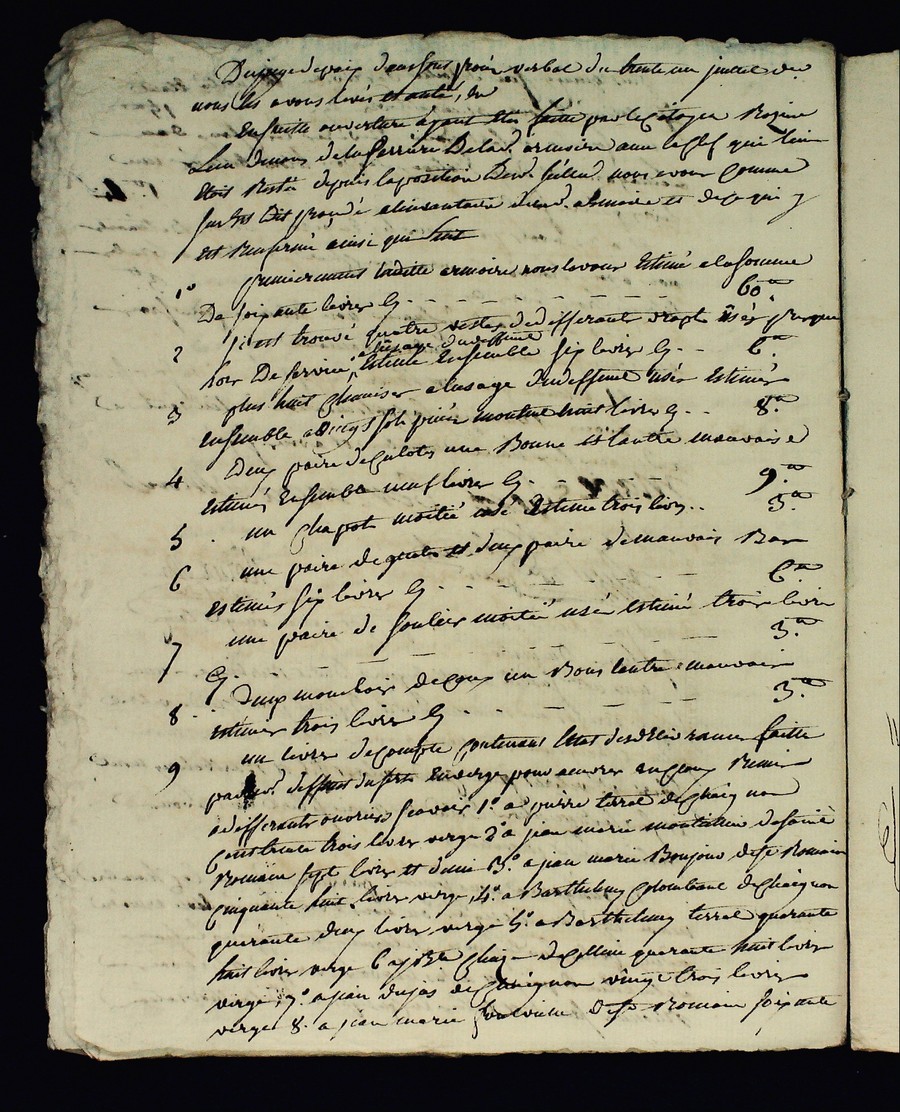 Du juge de paix dans son procès verbal du trente un juillet dr
nous les avons levés et ôté, et
Ensuitte ouverture ayant été faitte par le Citoyen
de la ferriere De lad. armoire avec la Clef qui
étoit Restée depuis laposition Desd. sçellés nous avons Comme
sus Est Dit procédé a linvantaire de lad. armoire et de Ce qui y
est Renfermé ainsi que suit
1° premierement laditte armoire nous lavons Estimé a la somme
De soixante livres Cy - - - - - - 60.ᵗᵗ
2 sest trouvé quatre vestes de differants draps usés presque
hor De service a lusage du deffunt Estimé Ensemble six livres Cy - - 6.ᵗᵗ
3 plus huit Chemises a lusage du deffunt usés Estimés
Ensemble a vingt sols pièce montant huit livres Cy - - 8.ᵗᵗ
4 Deux paire de Culotes une Bonne et lautre mauvaise
Estimés Ensemble neuf livres Cy - - - - - 9.ᵗᵗ
5 . un Chapot moitié usé Estimé trois livres - - 3.ᵗᵗ
6 une paire de guetres et deux paire de mauvais Bas
estimés six livres Cy - - - - - 6.ᵗᵗ
7 une paire de souliers moitié usés estimé trois livres
Cy - - - - - - 3.ᵗᵗ
8. Deux mouchoirs de Cou un Bons lautre mauvais
estimés trois livres Cy - - - - - 3.ᵗᵗ
9 un livre de Compte Contenant létat des délivrances faitte
par led. deffunt du fert En verge pour
a differants ouvriers scavoir 1° a pierre terral de Chaignon
Cent trente trois livres verge 2° a jean marie de saint
Romain sept livres et demi 3° a jean marie Bonjour de st Romain
Cinquante huit livres verge, 4° a Barthelemy Colombane de Chaignon
quarante deux livres verge 5° a Barthelemy terral quarante
huit livres verge 6 a de Cellieu quarante huit livres
verge, 7° a jean dujas de Chaignon vingt trois livres
verge 8. a jean marie de st Romain soixante